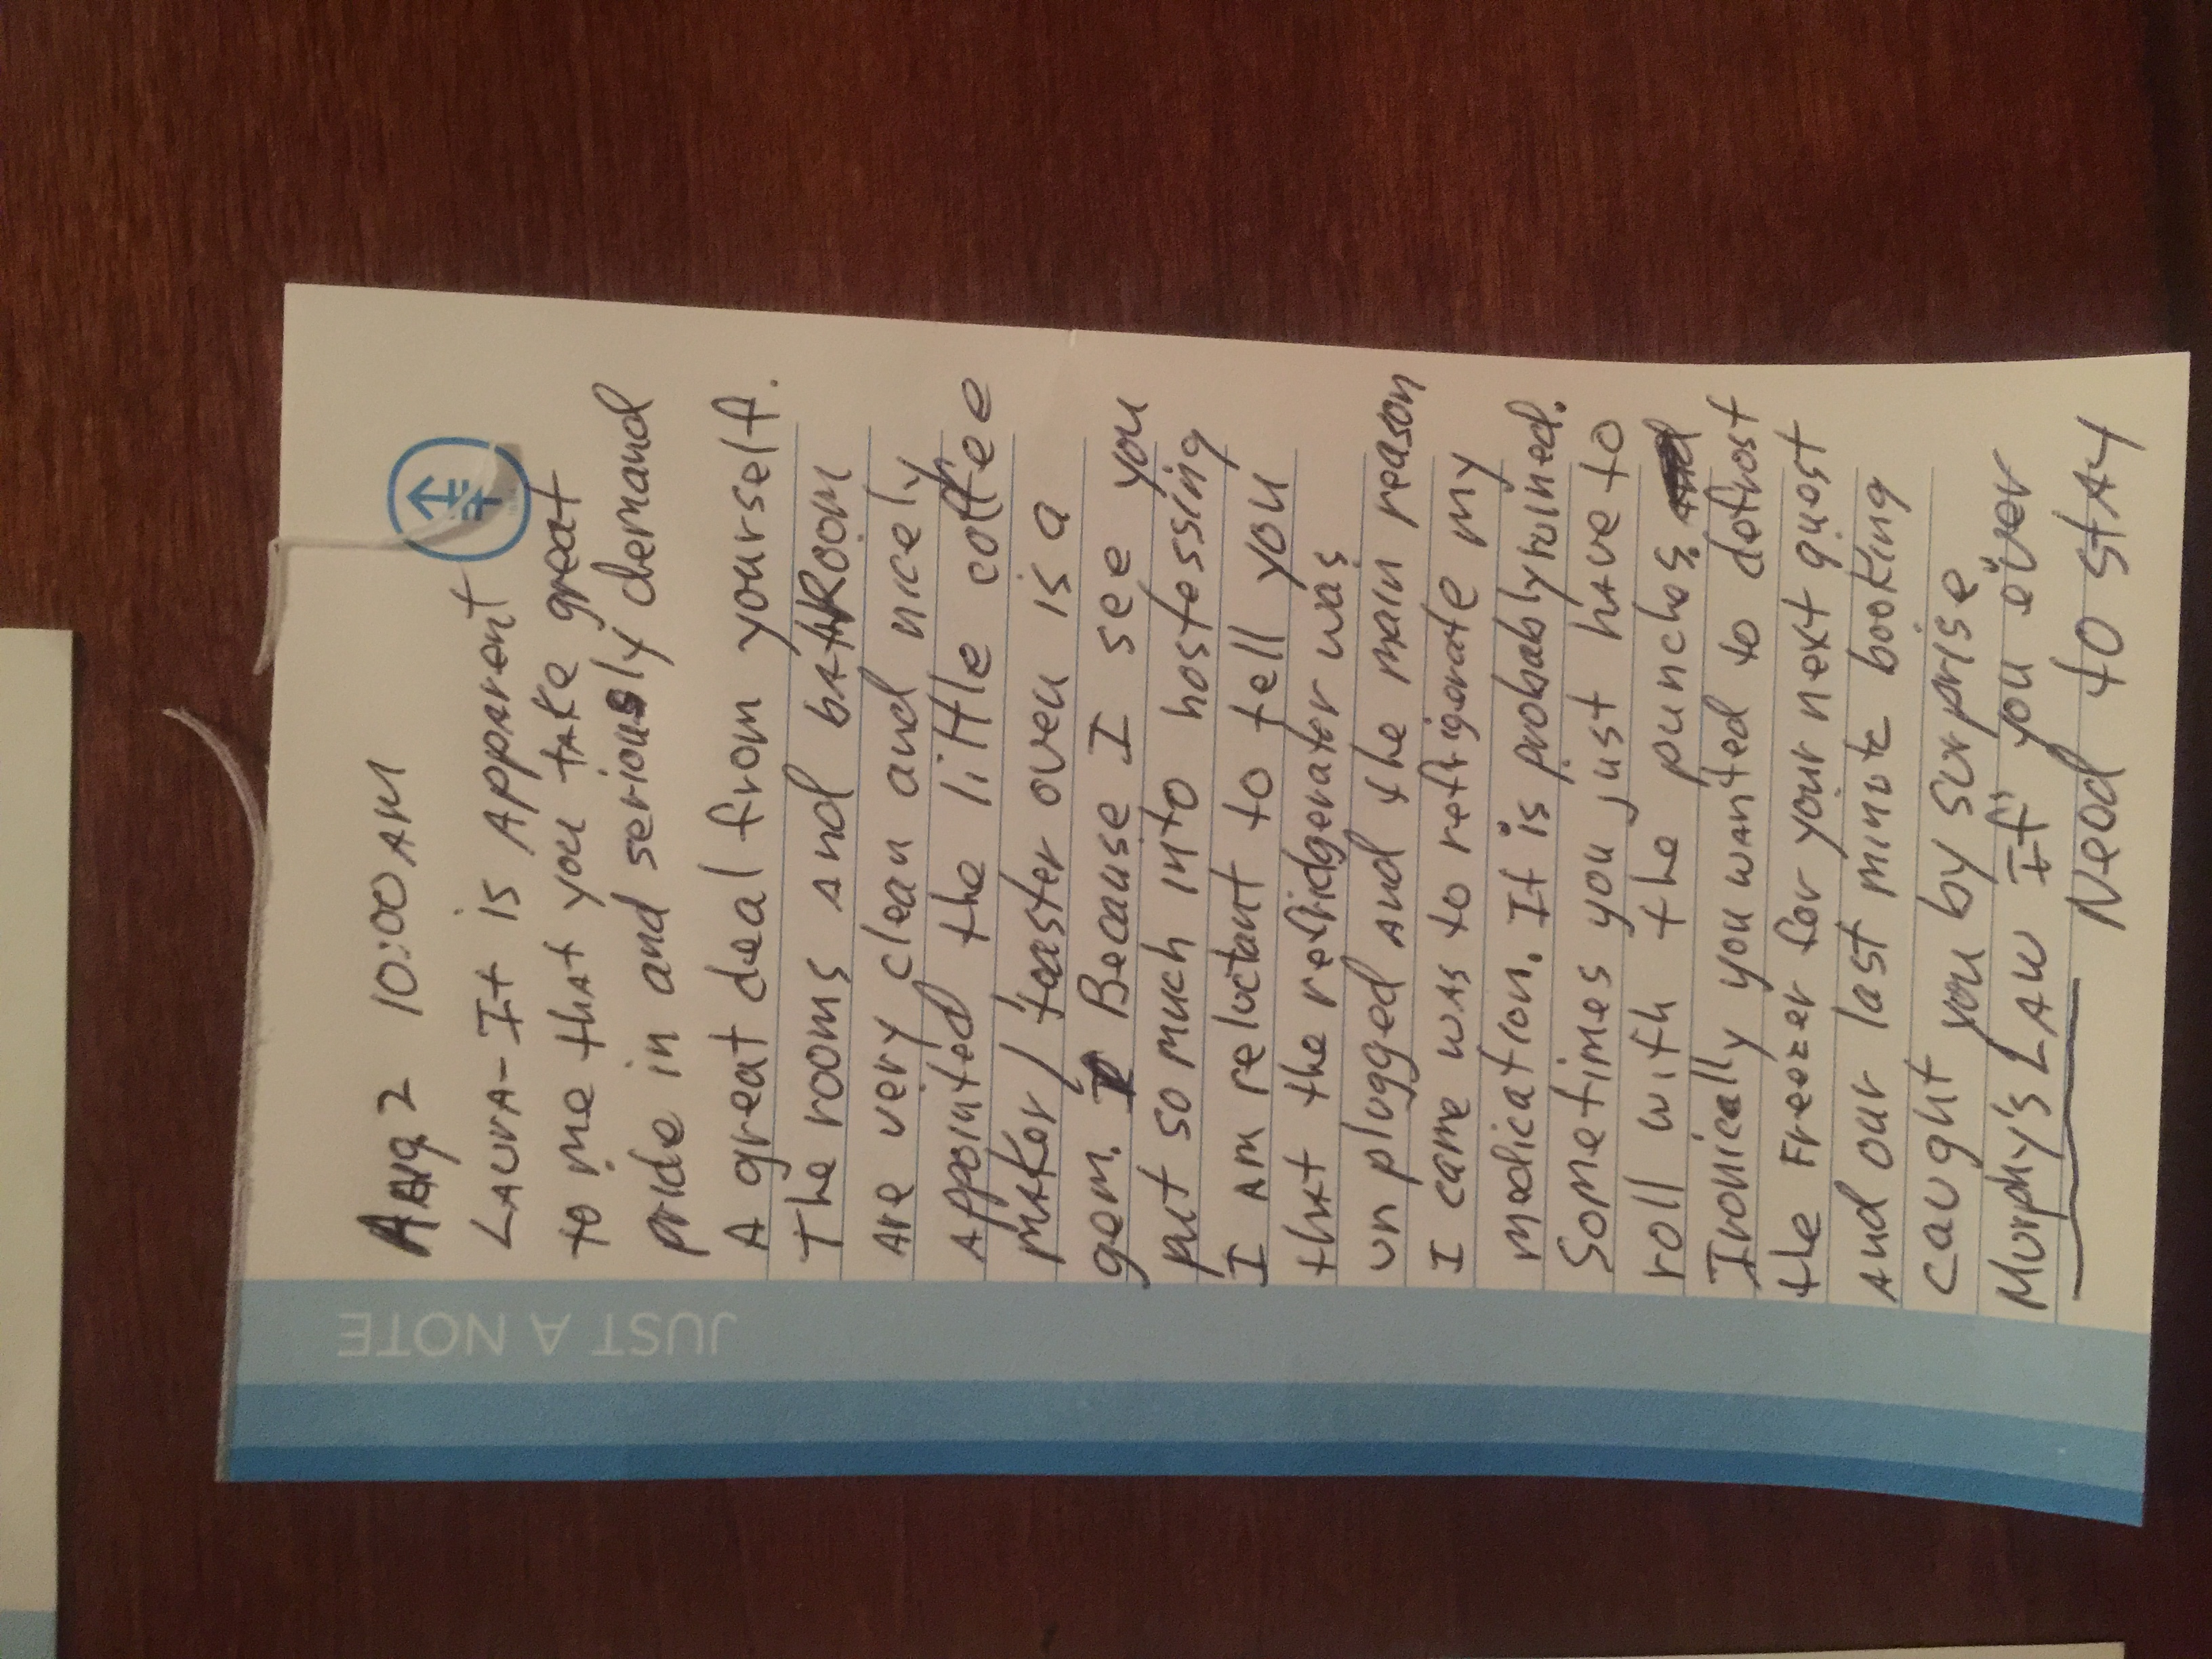 JUST A NOTE
Aug. 2 10:00 AM
LAURA-It is Apparent
to me that you take great
pride in and seriously demand
A great deal from yourself.
The rooms And bathRoom
Are very clean and nicely
Appointed the little coffee
maker/toaster oven is a
gem. Because I see you
put so much into hostessing
I Am reluctant to tell you
that the refridgerater was
un plugged And the main reason
I came was to refrigerate my
medication. It is probably ruined.
Sometimes you just have to
roll with the punches.
Ironically you wanted to defrost
the Freezer for your next guest
And our last minute booking
caught you by surprise.
Murphy's LAW If you ever
Need to stAy